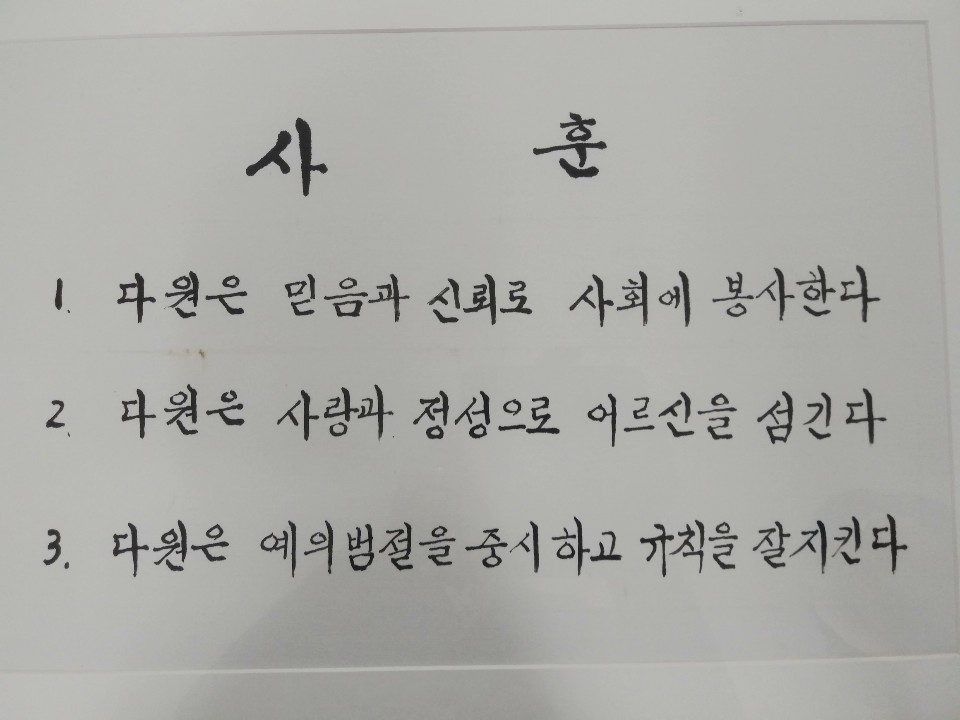 사 훈
1. 다원은 믿음과 신뢰로 사회에 봉사한다
2. 다원은 사랑과 정성으로 어르신을 섬긴다
3. 다원은 예의범절을 중시하고 규칙을 잘지킨다